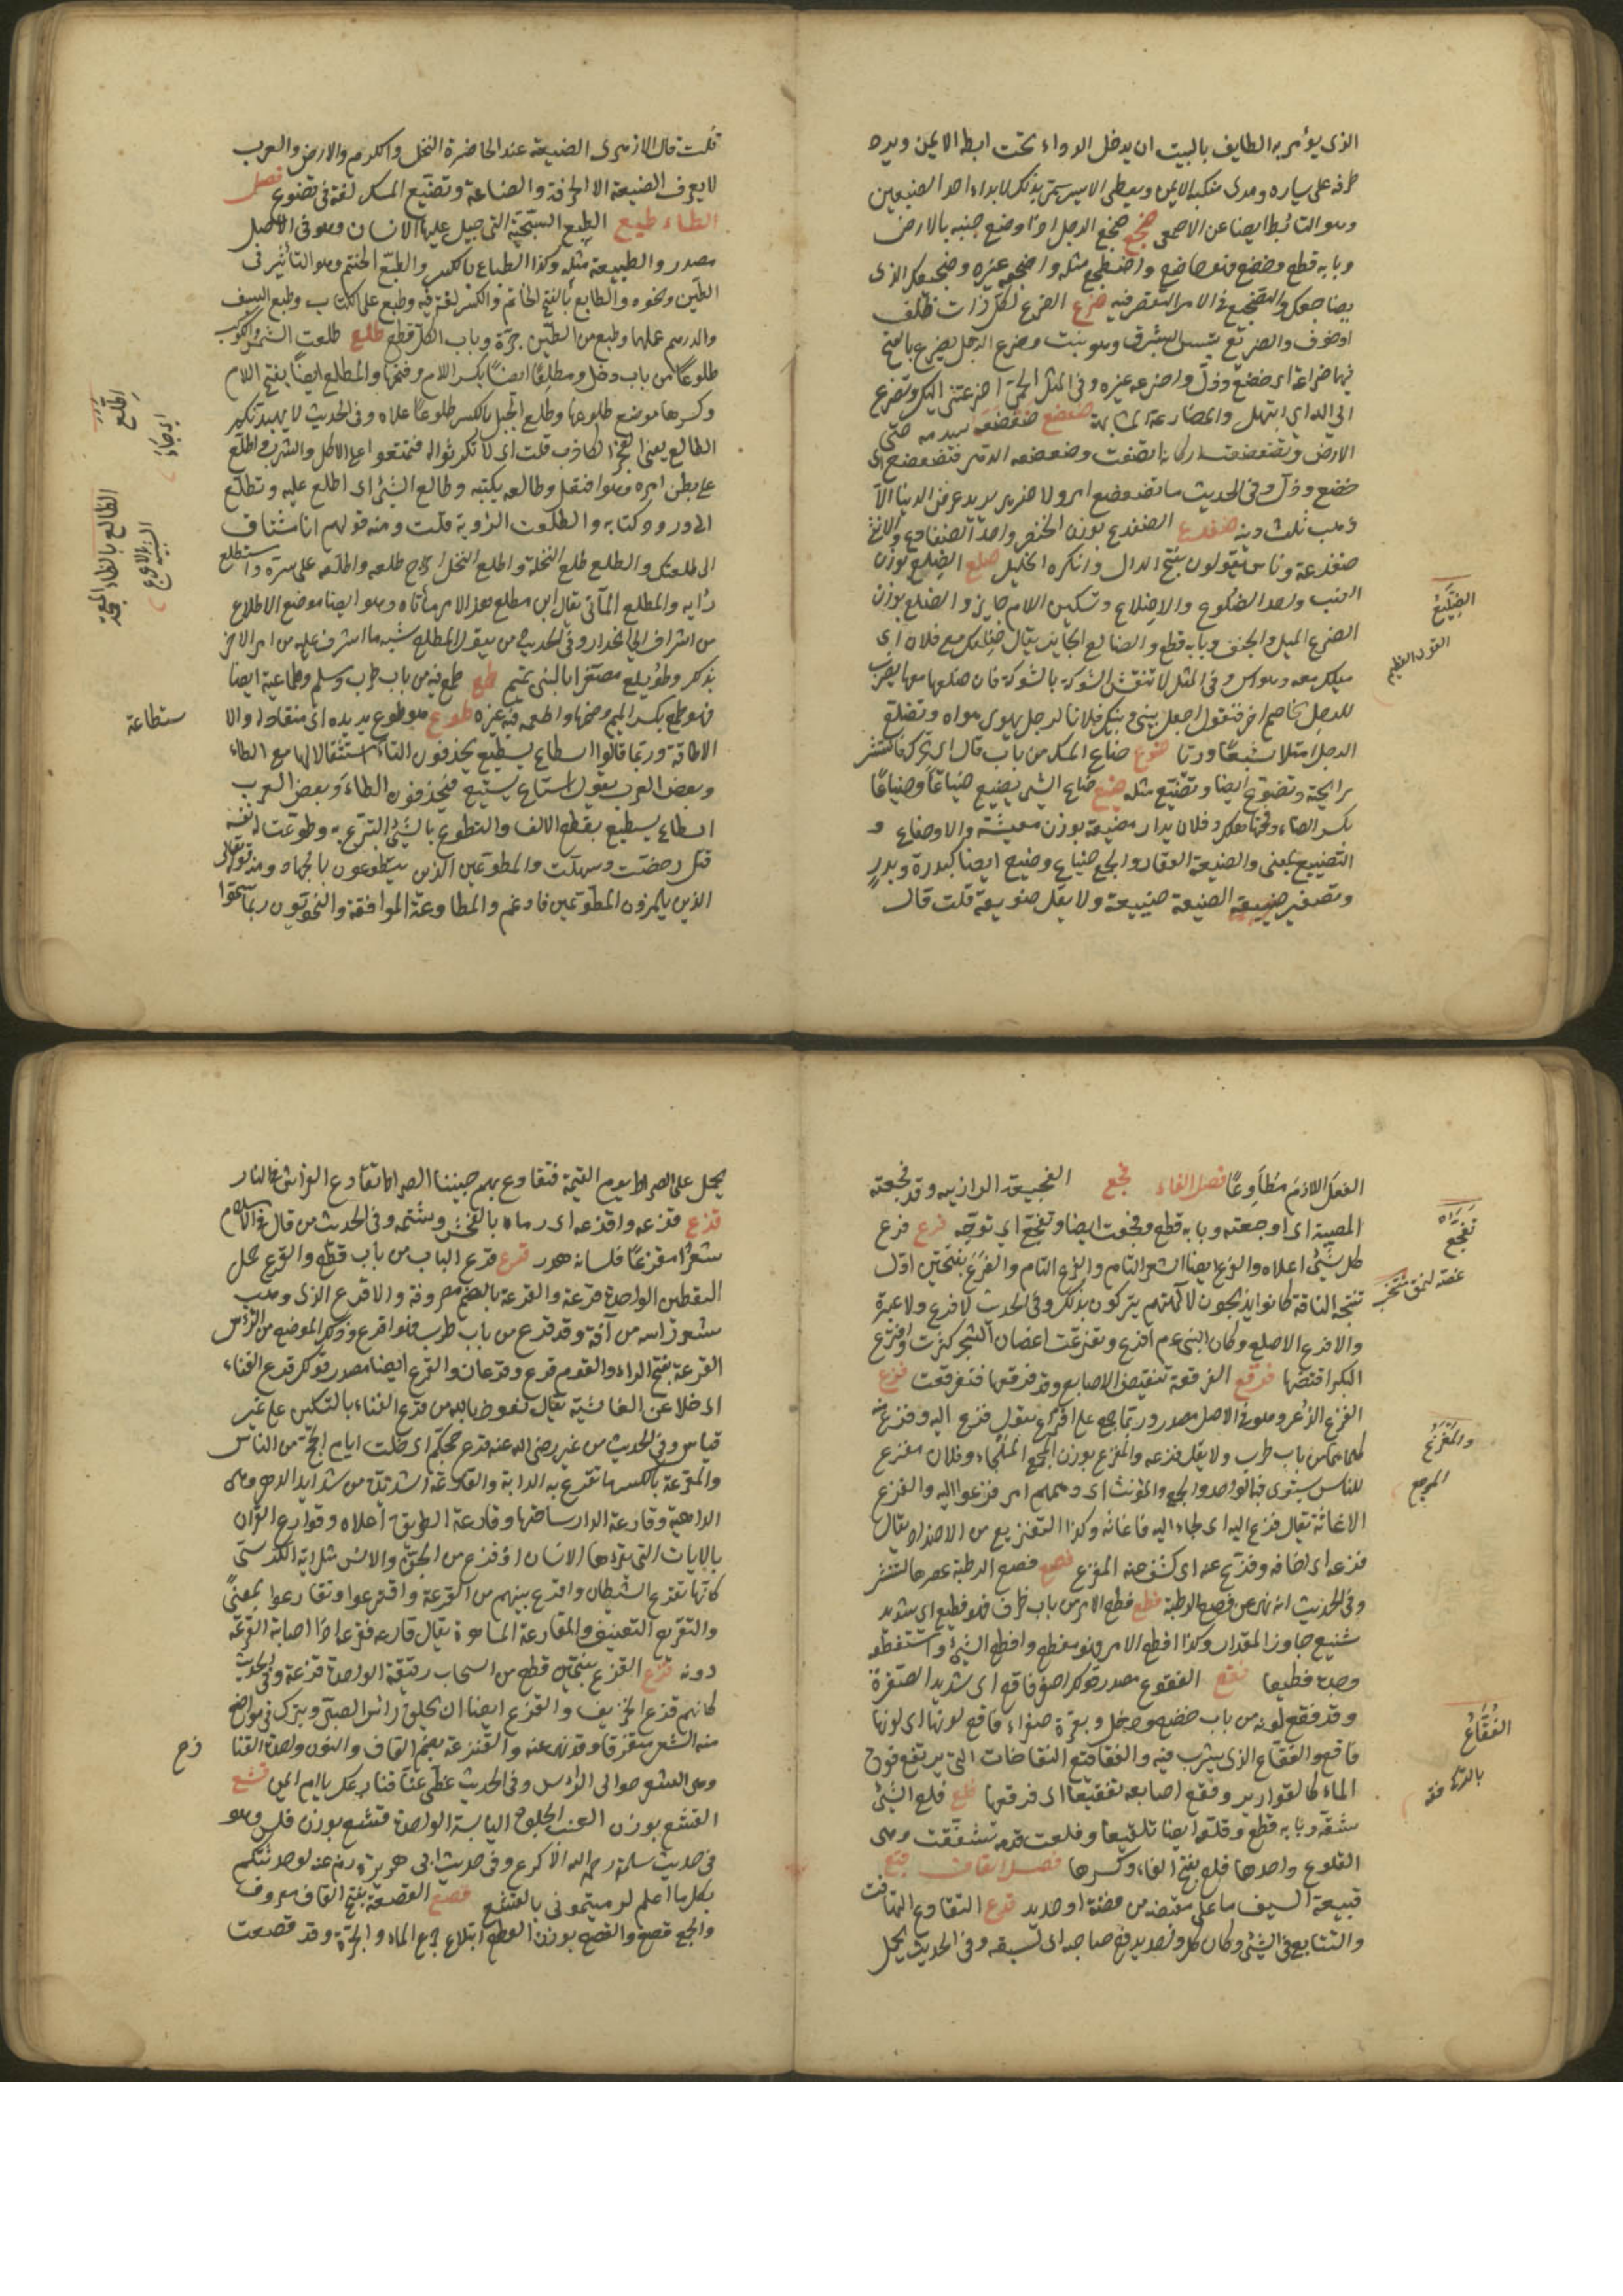 الذى يؤمر به الطايف بالبيت ان يدخل الرداء تحت ابطه الايمن ويرد
طرفه على يساره ويبدى منكبه الايمن ويغطى الايسر سمى بذلك لابداء احد الضبعين
وهو التأبط ايضا عن الاصمعى ضجع ضجع الرجل اذا وضع جنبه بالارض
وبابه قطع وخضع فهو ضاجع واضطجع مثله واضجع غيره وضجيعك الذى
يضاجعك والتضجيع فى الامر التقصير فيه ضرع الضرع لكل ذات ظلف
او خف والضريع يبيس الشبرق وهو نبت وضرع الرجل يضرع بالفتح
فيهما ضراعة اى خضع وذل واضرعه غيره وفى المثل الحمى اضرعتنى اليك وتضرع
الى الله اى ابتهل والمضارعة المشابهة ضعضع ضعضعه هدمه حتى
الارض وتضعضعت اركانه اتضعت وضعضعه الدهر فتضعضع اى
خضع وذل وفى الحديث ما تضعضع امرؤ لاخر يريد به عرض الدنيا الا
ذهب ثلثا دينه ضفدع الضفدع بوزن الخنصر واحد الضفادع والانثى
ضفدعة وناس يقولون بفتح الدال وانكره الخليل ضلع الضلع بوزن
العنب واحد الضلوع والاضلاع وتسكين اللام جايز والضلع بوزن
الضرع الميل والجنف وبابه قطع والضالع الجاير يقال ضلعك مع فلان اى
ميلك معه وهواك وفى المثل لا تنقش الشوكة بالشوكة فان ضلعها معها يضرب
للرجل يخاصم اخر فيقول اجعل بينى وبينك فلانا لرجل يهوى هواه وتضلع
الرجل امتلا شبعا وريا ضوع ضاع المسك من باب قال اى تحرك فانتشر
رايحته وتضوع ايضا وتضيع مثله ضيع ضاع الشئ يضيع ضياعا وضياعا
بكسر الضاد وفتحها هلك وفلان بدار مضيعة بوزن معيشة والاضاعة و
التضييع بمعنى والضيعة العقار والجمع ضياع وضيع ايضا كبدرة وبدر
وتصغير ضيعة الضيعة ضييعة ولا يقل ضويعة قلت قال
الضليع
القوى العظيم
قلت قال الازهرى الضيعة عند الحاضرة النخل والكرم والارض والعرب
لا يعرف الضيعة الا الحرفة والصناعة وتضيع المسك لغة فى تضوع فصل
الطاء طبع الطبع السجية التى جبل عليها الانسان وهو فى الاصل
مصدر والطبيعة مثله وكذا الطباع بالكسر والطبع الختم وهو التأثير فى
الطين ونحوه والطابع بالفتح الخاتم والكسر لغة فيه وطبع على الكتاب وطبع السيف
والدرهم عملهما وطبع من الطين جرة وباب الكل قطع طلع طلعت الشمس والكوكب
طلوعا من باب دخل ومطلعا ايضا بكسر اللام وفتحها والمطلع ايضا بفتح اللام
وكسرها موضع طلوعها وطلع الجبل بالكسر طلوعا علاه وفى الحديث لا يهيدنكم
الطالع يعنى الفجر الكاذب قلت اى لا تكترثوا له فتمتنعوا عن الاكل والشرب واطلع
على بطن امره وهو افتعل وطالعه بكتبه وطالع الشئ اى اطلع عليه وتطلع
الى ورود كتابه والطلعة الرؤية قلت ومنه قولهم انا مشتاق
الى طلعتك والطلع طلع النخلة واطلع النخل اخرج طلعه واطلعه على سره واستطلع
رأيه والمطلع المأتى يقال اين مطلع هذا الامر اى مأتاه وهو ايضا موضع الاطلاع
من اشراف الى انحدار وفى الحديث من هول المطلع شبه ما اشرف عليه من امر الاخرة
بذلك وطويلع مصغرا ماء لبنى تميم طمع طمع فيه من باب طرب وسلم وطماعية ايضا
فهو طمع بكسر الميم وضمها واطمعه فيه غيره طوع هو طوع يديه اى منقاد له والا
ستطاعة
الاطاقة وربما قالوا اسطاع يسطيع يحذفون التاء استثقالا لها مع الطاء
وبعض العرب يقول استاع يستيع فيحذفون الطاء وبعض العرب
اسطاع يسطيع بقطع الالف والتطوع بالشئ التبرع به وطوعت له نفسه
قتل رخصت وسهلت والمطوعين الذين يتطوعون بالجهاد ومنه قوله تعالى
الذين يلمزون المطوعين فادغم والمطاوعة الموافقة والنحويون ربما سموا
اطلع
اى جاء
الفعل اللازم مطاوعا فصل الفاء فجع الفجيعة الرازية وقد فجعته
المصيبة اى اوجعته وبابه قطع وفجعت ايضا وتفجع اى توجع فرع فرع
كل شئ اعلاه والفرع ايضا الشعر التام والفرع التام والفرع بفتحتين اول
تنتجه الناقة كانوا يذبحونه لآلهتهم يتبركون بذلك وفى الحديث لا فرع ولا عتيرة
والافرع الاصلع وكان النبى عم افرع وتفرعت اغصان الشجر كثرت وافترع
البكر افتضها فرقع الفرقعة تنقيض الاصابع وقد فرقعها فتفرقعت فزع
الفزع الذعر وهو فى الاصل مصدر وربما جمع على افزاع يقول فزع اليه وفزع منه
كلاهما من باب طرب ولا يقل فزعه والمفزع بوزن المجمع الملجاء وفلان مفزع
للناس يستوى فيه الواحد والجمع والمؤنث اى دهمهم امر فزعوا اليه والفزع
الاغاثة يقال فزع اليه اى لجاء اليه فاغاثه وكذا التفزيع من الاضداد يقال
فزعه اى اخافه وفزع عنه اى كشف عنه الفزع فصع فصع الرطبة عصرها لتنقشر
وفى الحديث انه نهى عن فصع الرطبة فظع فظع الامر من باب ظرف فهو فظيع اى شديد
شنيع جاوز المقدار وكذا افظع الامر فهو مفظع وافظع الشئ واستفظعه
وجده فظيعا فقع الفقوع مصدر قولك اصفر فاقع اى شديد الصفرة
وقد فقع لونه من باب خضع ودخل وبقرة صفراء فاقع لونها اى لونها
فاقع والفقاع الذى يشرب فيه والفقاقيع النفاخات التى يرتفع فوق
الماء كالقوارير وفقع اصابعه تفقيعا اى فرقعها فلع فلع الشئ
شقه وبابه قطع وفلعه ايضا تفليعا وفلعت قدمه تشققت وهى
الفلوع واحدها فلع بفتح الفاء وكسرها فصل القاف قبع
قبيعة السيف ما على مقبضه من فضة او حديد قدع التقادع التهافت
والتتابع فى الشئ وكان كل واحد يدفع صاحبه اى لسبقه وفى الحديث يحمل
تفجع
والمفزع
المرجع
الفقاع
يحمل على الصراط يوم القيمة فتقادع بهم جنبتا الصراط تقادع الفراش فى النار
قذع قذعه واقذعه اى رماه بالفحش وشتمه وفى الحديث من قال فى الاسلام
شعرا مقذعا فلسانه هدر قرع قرع الباب من باب قطع والقرع حمل
اليقطين الواحدة قرعة والقرعة بالضم معروفة والاقرع الذى ذهب
شعر راسه من آفة وقد قرع من باب طرب فهو اقرع وذلك الموضع من الرأس
القرعة بفتح الراء والقوم قرع وقرعان والقرع ايضا مصدر قولك قرع الفناء
اى خلا عن الغاشية يقال نعوذ بالله من قرع الفناء بالتسكين على غير
قياس وفى الحديث عن عمر رضى الله عنه قرع حجكم اى خلت ايام الحج من الناس
والمقرعة بالكسر ما تقرع به الدابة والقارعة الشديدة من شدايد الدهر وهى
الداهية وقارعة الدار ساحتها وقارعة الطريق اعلاه وقوارع القران
بالايات التى يقرءها الانسان اذا فزع من الجن والانس مثل اية الكرسى
كانها تقرع الشيطان واقرع بينهم من القرعة واقترعوا وتقارعوا بمعنى
والتقريع التعنيف والمقارعة المساهمة يقال قارعه فقرعه اذا اصابه القرعة
دونه قزع القزع بفتحتين قطع من السحاب رقيقة الواحدة قزعة وفى الحديث
كانهم قزع الخريف والقزع ايضا ان يحلق راس الصبى ويترك فى مواضع
منه الشعر متفرقا وقد نهى عنه والقنزعة بضم القاف والنون واحدة القنا
زع
وهى الشعر حوالى الراس وفى الحديث غطى عنا قنازعك يا ام ايمن قشع
القشع بوزن العنب الجلود اليابسة الواحدة قشع بوزن فلس وهو
فى حديث سلمة رحمه الله الاكوع وفى حديث ابى هريرة رض عنه لو حدثتكم
بكل ما اعلم لرميتمونى بالقشع قصع القصعة بفتح القاف معروف
والجمع قصع والقصع بوزن القطع ابتلاع جرع الماء والجرة وقد قصعت